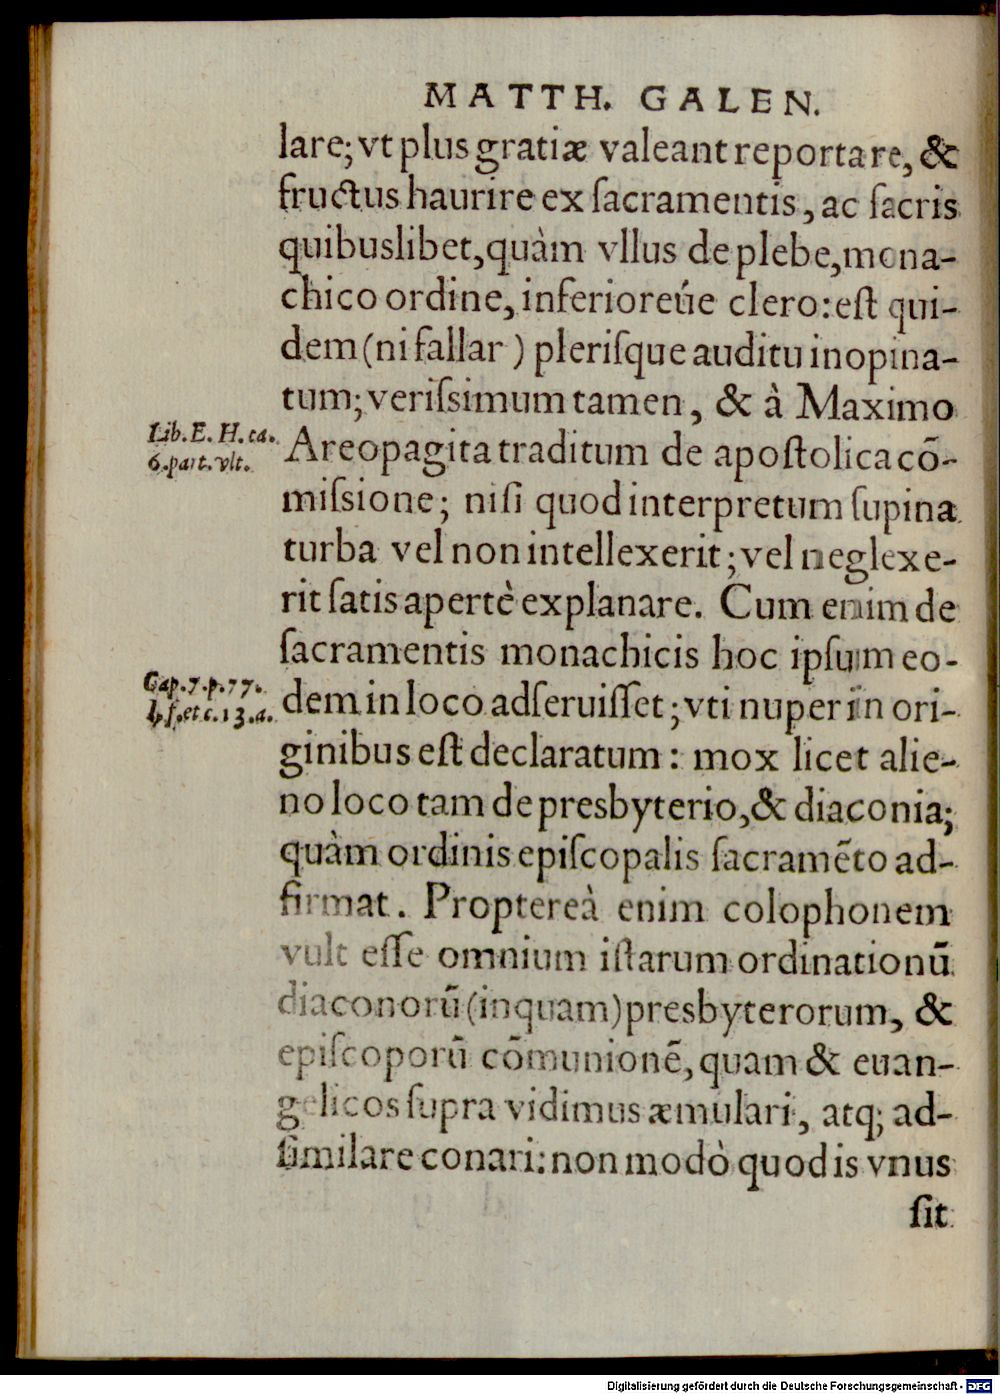 MATTH. GALEN.
lare; vt plus gratiæ valeant reportare, &
fructus haurire ex ſacramentis, ac ſacris
quibuslibet, quàm vllus de plebe, mona-
chico ordine, inferioreúe clero: eſt qui-
dem (ni fallar) pleriſque auditu inopina-
tum; veriſsimum tamen, & à Maximo
Lib. E. H. ca.
6. part. vlt.
Areopagita traditum de apoſtolica cō-
miſsione; niſi quod interpretum ſupina
turba vel non intellexerit; vel neglexe-
rit ſatis apertè explanare. Cum enim de
ſacramentis monachicis hoc ipſum eo-
Cap. 7. p. 77.
b. f. et c. 13. a.
dem in loco adſeruiſſet; vti nuper in ori-
ginibus eſt declaratum: mox licet alie-
no loco tam de presbyterio, & diaconia;
quàm ordinis epiſcopalis ſacramēto ad-
firmat. Proptereà enim colophonem
vult eſſe omnium iſtarum ordinationū
diaconorū (inquam) presbyterorum, &
epiſcoporū cōmunionē, quam & euan-
gelicos ſupra vidimus æmulari, atq; ad-
ſimilare conari: non modò quod is vnus
ſit
Digitalisierung gefördert durch die Deutsche Forschungsgemeinschaft - DFG